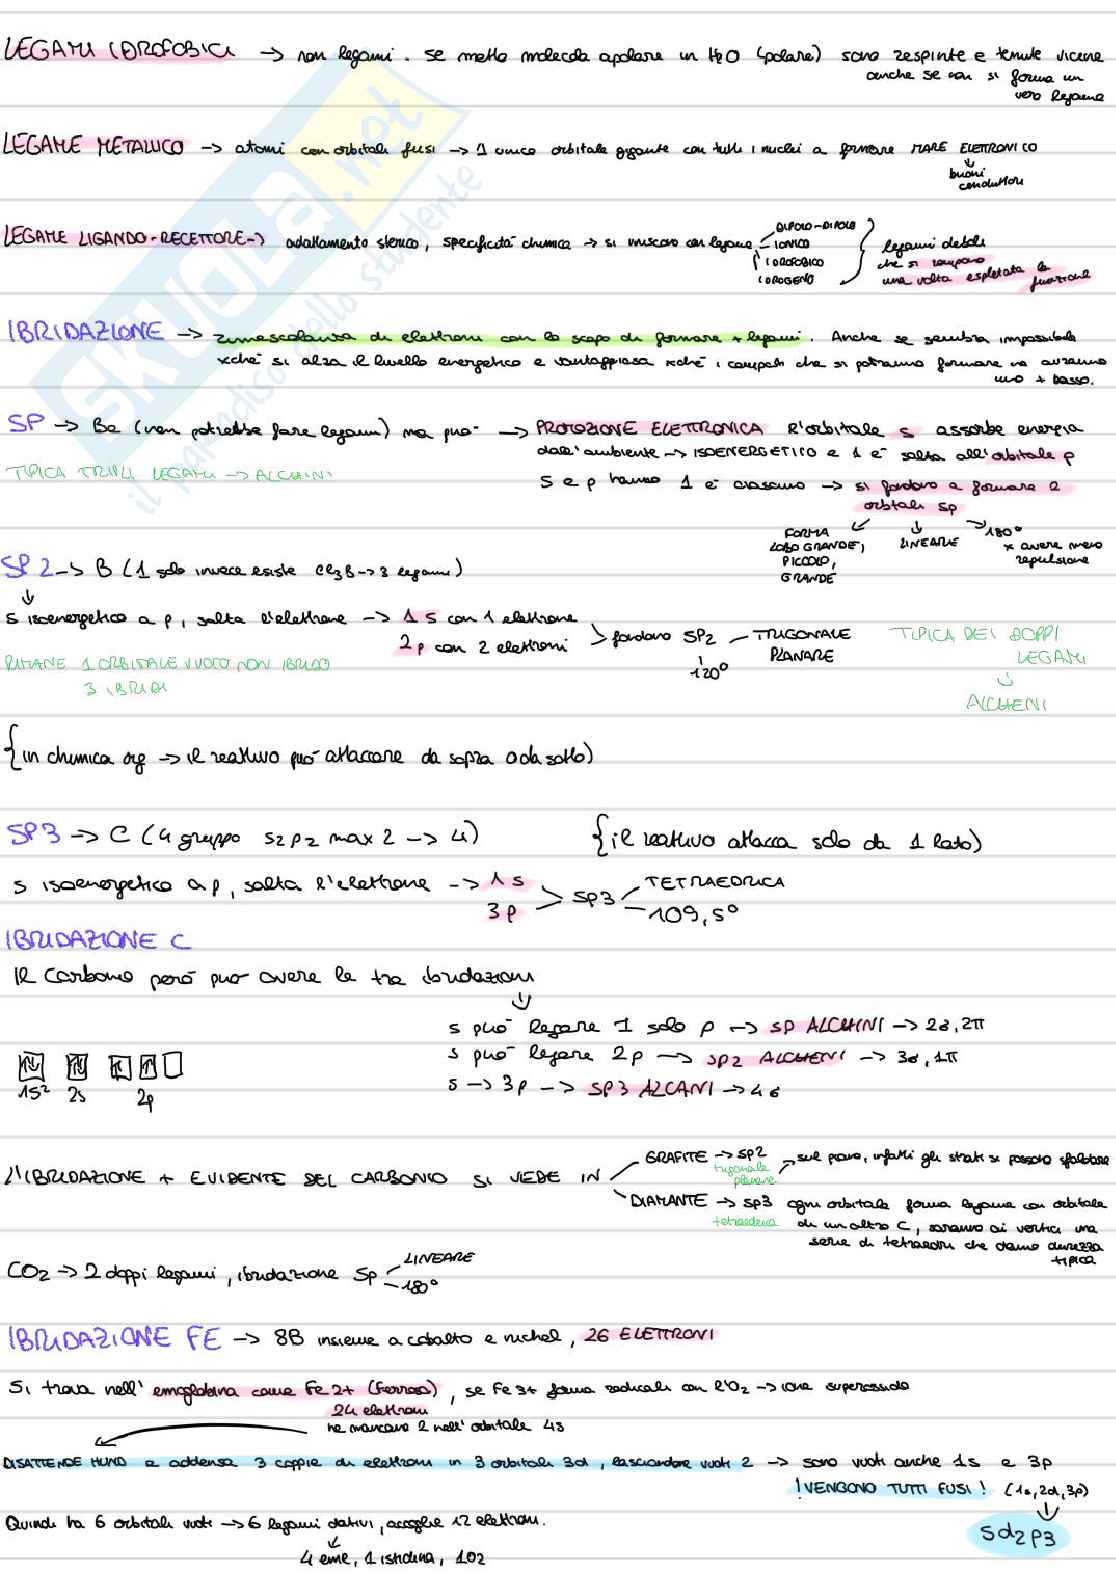 LEGAMI IDROFOBICI → non legami. Se metto molecola apolare in H2O (polare) sono respinte e tenute vicine
anche se non si forma un
vero legame
LEGAME METALLICO → atomi con orbitali fusi → 1 unico orbitale gigante con tutti i nuclei a formare MARE ELETTRONICO
↓
buoni
conduttori
LEGAME LIGANDO-RECETTORE → adattamento sterico, specificità chimica → si uniscono con legame
DIPOLO-DIPOLO
IONICO
IDROFOBICO
IDROGENO
legami deboli
che si rompono
una volta espletata la
funzione
IBRIDAZIONE → rimescolanza di elettroni con lo scopo di formare + legami. Anche se sembra impossibile
xchè si alza il livello energetico è vantaggiosa xchè i composti che si potranno formare ne avranno
uno + basso.
SP → Be (non potrebbe fare legami) ma può → PROMOZIONE ELETTRONICA l'orbitale s assorbe energia
dall'ambiente → ISOENERGETICO e 1 e⁻ salta all'orbitale p
TIPICA TRIPLI LEGAMI → ALCHINI
s e p hanno 1 e⁻ ciascuno → si fondono a formare 2
orbitali sp
FORMA
LOBO GRANDE,
PICCOLO,
GRANDE
LINEARE
180°
x avere meno
repulsione
SP2 → B (1 solo invece esiste Cl3B → 3 legami)
↓
s isoenergetico a p, salta l'elettrone → 1 s con 1 elettrone
2 p con 2 elettroni
fondono SP2 — TRIGONALE
PLANARE
120°
RIMANE 1 ORBITALE VUOTO NON IBRIDO
3 IBRIDI
TIPICA DEI DOPPI
LEGAMI
↓
ALCHENI
{in chimica org → il reattivo può attaccare da sopra o da sotto)
SP3 → C (4 gruppo s2 p2 max 2 → 4)
{il reattivo attacca solo da 1 lato)
s isoenergetico a p, salta l'elettrone → 1 s
3 p
SP3
TETRAEDRICA
109,5°
IBRIDAZIONE C
Il Carbonio però può avere le tre ibridazioni
↓
s può legare 1 solo p → sp ALCHINI → 2σ, 2π
s può legare 2p → sp2 ALCHENI → 3σ, 1π
s → 3p → SP3 ALCANI → 4σ
1s² 2s 2p
L'IBRIDAZIONE + EVIDENTE DEL CARBONIO SI VEDE IN
GRAFITE → SP2 → sul piano, infatti gli strati si possono sfaldare
trigonale
planare
DIAMANTE → sp3 ogni orbitale forma legame con orbitale
tetraedrica di un altro C, saranno ai vertici una
serie di tetraedri che danno durezza
tipica
CO2 → 2 doppi legami, ibridazione sp
LINEARE
180°
IBRIDAZIONE FE → 8B insieme a cobalto e nichel, 26 ELETTRONI
Si trova nell'emoglobina come Fe 2+ (Ferroso), se Fe 3+ forma radicali con l'O2 → ione superossido
24 elettroni
ne mancano 2 nell'orbitale 4s
DISATTENDE HUND e addensa 3 coppie di elettroni in 3 orbitali 3d, lasciandone vuoti 2 → sono vuoti anche 1s e 3p
!VENGONO TUTTI FUSI! (1s, 2d, 3p)
↓
sd2p3
Quindi ha 6 orbitali vuoti → 6 legami dativi, accoglie 12 elettroni.
↓
4 eme, 1 istidina, 1O2
SKUOLA.net
il paradiso dello studente